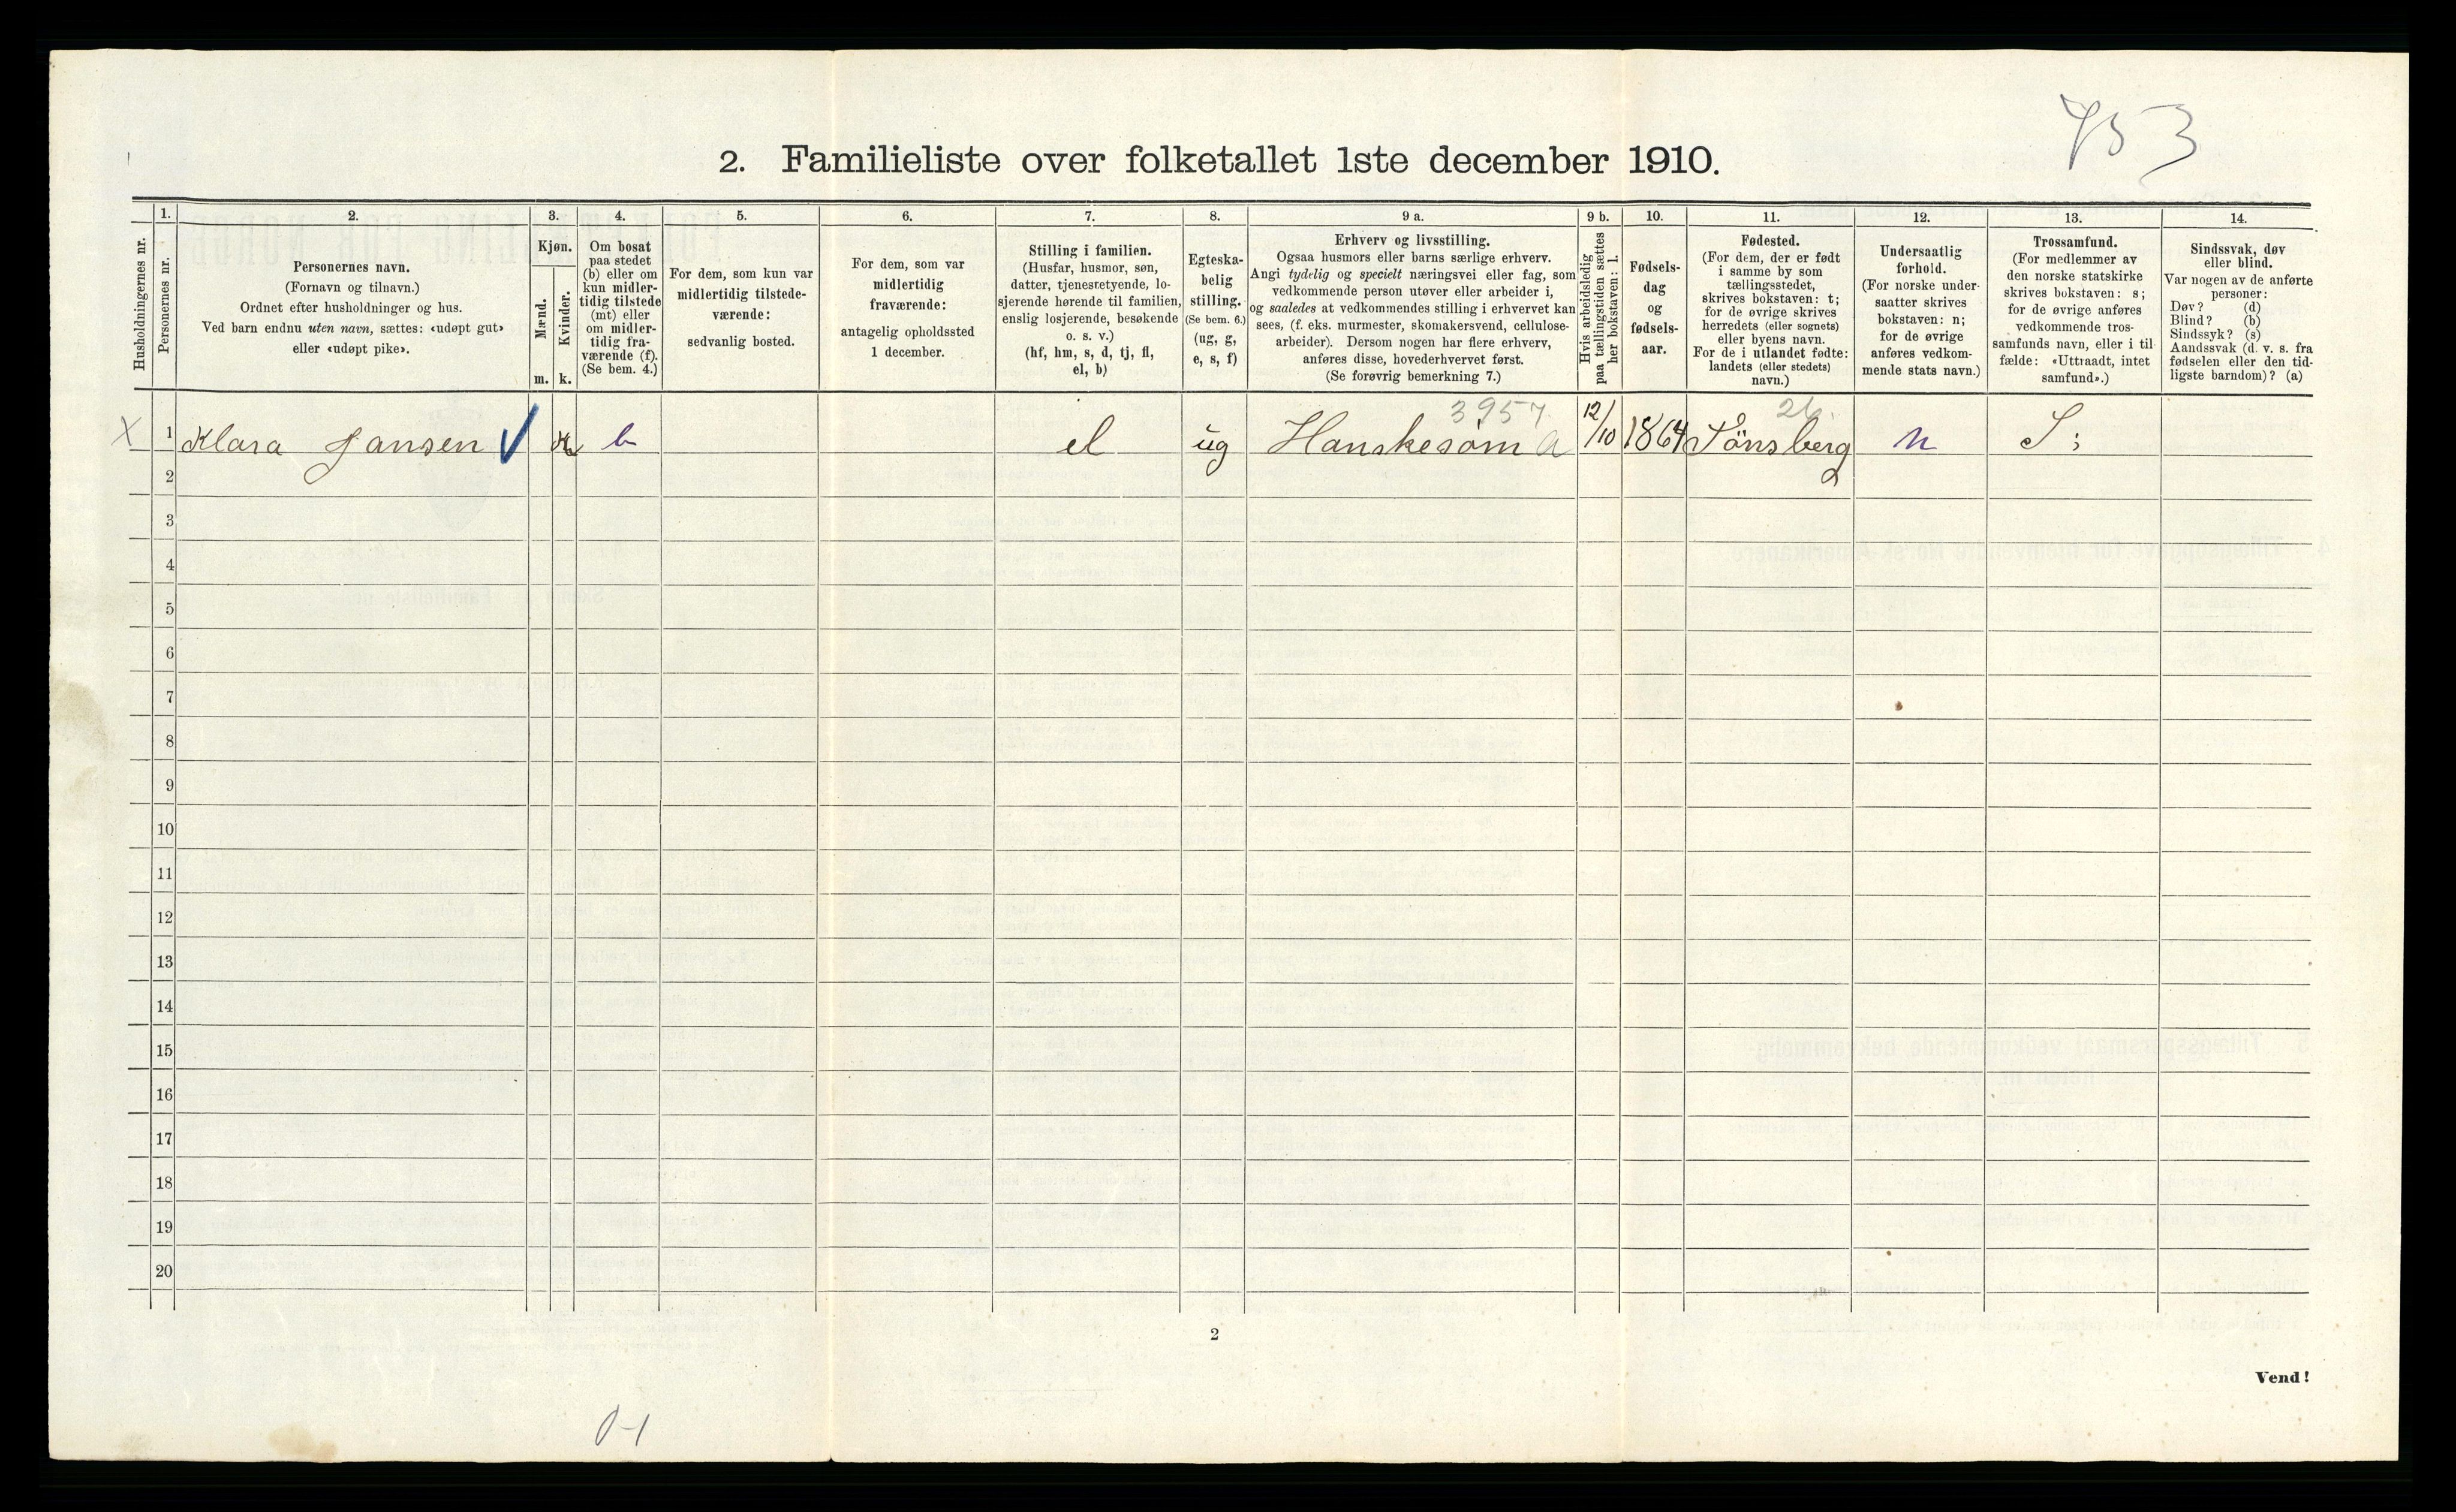 753
2. Familieliste over folketallet 1ste december 1910.
Husholdningernes nr.
1.
Personernes nr.
2.
Personernes navn.
(Fornavn og tilnavn.)
Ordnet efter husholdninger og hus.
Ved barn endnu uten navn, sættes: «udøpt gut»
eller «udøpt pike».
3.
Kjøn.
Mænd.
m.
Kvinder.
k.
4.
Om bosat
paa stedet
(b) eller om
kun midler-
tidig tilstede
(mt) eller
om midler-
tidig fra-
værende (f).
(Se bem. 4.)
5.
For dem, som kun var
midlertidig tilstede-
værende:
sedvanlig bosted.
6.
For dem, som var
midlertidig
fraværende:
antagelig opholdssted
1 december.
7.
Stilling i familien.
(Husfar, husmor, søn,
datter, tjenestetyende, lo-
sjerende hørende til familien,
enslig losjerende, besøkende
o. s. v.)
(hf, hm, s, d, tj, fl,
el, b)
8.
Egteska-
belig
stilling.
(Se bem. 6.)
(ug, g,
e, s, f)
9 a.
Erhverv og livsstilling.
Ogsaa husmors eller barns særlige erhverv.
Angi tydelig og specielt næringsvei eller fag, som
vedkommende person utøver eller arbeider i,
og saaledes at vedkommendes stilling i erhvervet kan
sees, (f. eks. murmester, skomakersvend, cellulose-
arbeider). Dersom nogen har flere erhverv,
anføres disse, hovederhvervet først.
(Se forøvrig bemerkning 7.)
9 b.
Hvis arbeidsledig
paa tællingstiden sættes
her bokstaven: l.
10.
Fødsels-
dag
og
fødsels-
aar.
11.
Fødested.
(For dem, der er født
i samme by som
tællingsstedet,
skrives bokstaven: t;
for de øvrige skrives
herredets (eller sognets)
eller byens navn.
For de i utlandet fødte:
landets (eller stedets)
navn.)
12.
Undersaatlig
forhold.
(For norske under-
saatter skrives
bokstaven: n;
for de øvrige
anføres vedkom-
mende stats navn.)
13.
Trossamfund.
(For medlemmer av
den norske statskirke
skrives bokstaven: s;
for de øvrige anføres
vedkommende tros-
samfunds navn, eller i til-
fælde: «Uttraadt, intet
samfund».)
14.
Sindssvak, døv
eller blind.
Var nogen av de anførte
personer:
Døv? (d)
Blind? (b)
Sindssyk? (s)
Aandssvak (d. v. s. fra
fødselen eller den tid-
ligste barndom)? (a)
3957. 26.
X 1 Klara Jansen k b el ug Hanskesöm a 12/10 1864 Tönsberg n S;
2
3
4
5
6
7
8
9
10
11
12
13
14
15
16
17
18
19
20
2
Vend!
0-1